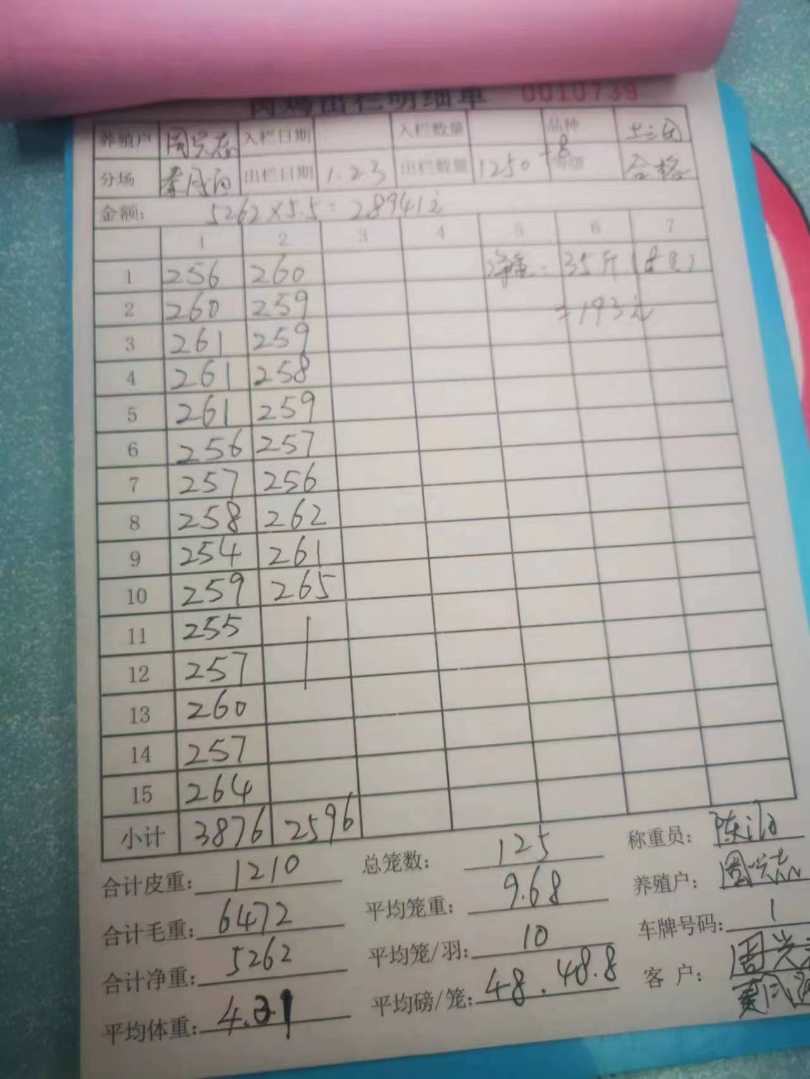 肉鸡出栏明细单 0010739
养殖户 周兴志 入栏日期 入栏数量 品种 土三肉
分场 出栏日期 1.23 出栏数量 1250 -8 等级 合格
金额: 5262×5.5=28941元
1 2 3 4 5 6 7
1 256 260 35斤
2 260 259 =193元
3 261 259
4 261 258
5 261 259
6 256 257
7 257 256
8 258 262
9 254 261
10 259 265
11 255
12 257
13 260
14 257
15 264
小计 3876 2596
合计皮重: 1210 总笼数: 125 称重员:
合计毛重: 6472 平均笼重: 9.68 养殖户: 周兴志
合计净重: 5262 平均笼/羽: 10 车牌号码: 1
平均体重: 4.21 平均磅/笼: 48.48.8 客 户: 周兴